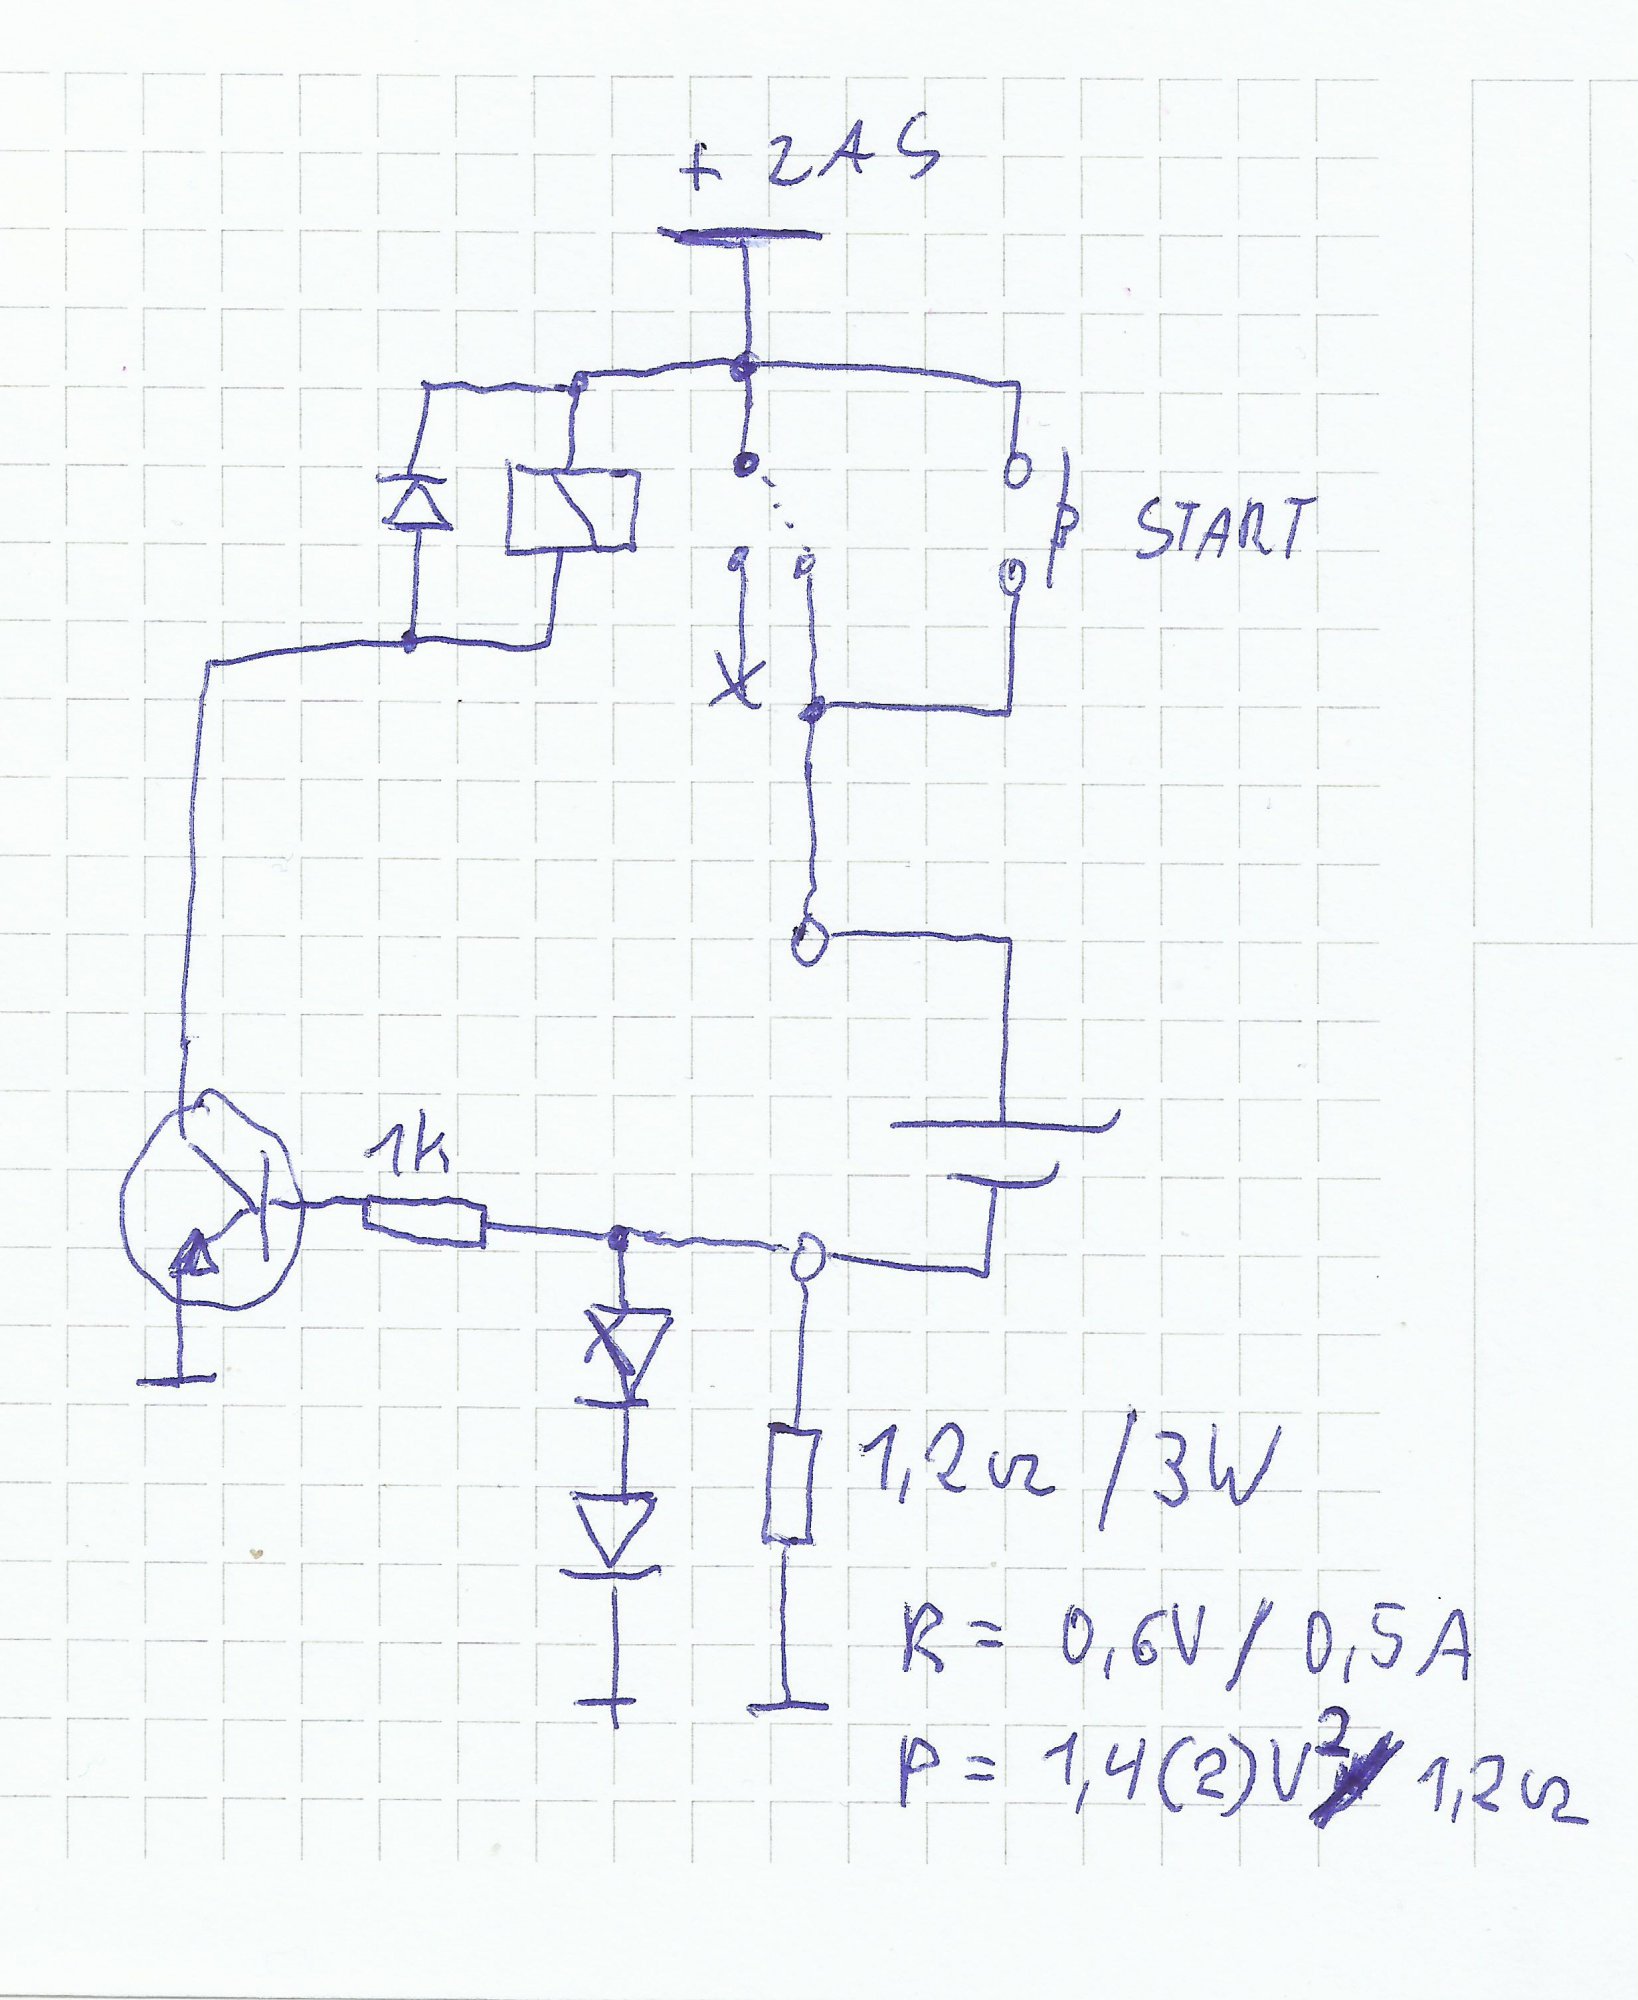 + ZAS
START
1k
1,2Ω / 3W
R = 0,6V / 0,5A
P = 1,4(2)V² / 1,2Ω